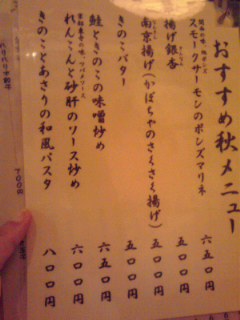 おすすめ秋メニュー
スモークサーモンのポンズマリネ 六五〇円
揚げ銀杏 五〇〇円
南京揚げ(かぼちゃのさくさく揚げ) 五〇〇円
きのこバター 五〇〇円
鮭ときのこの味噌炒め 六五〇円
れんこんと砂肝のソース炒め 六〇〇円
きのことあさりの和風パスタ 八〇〇円
700円